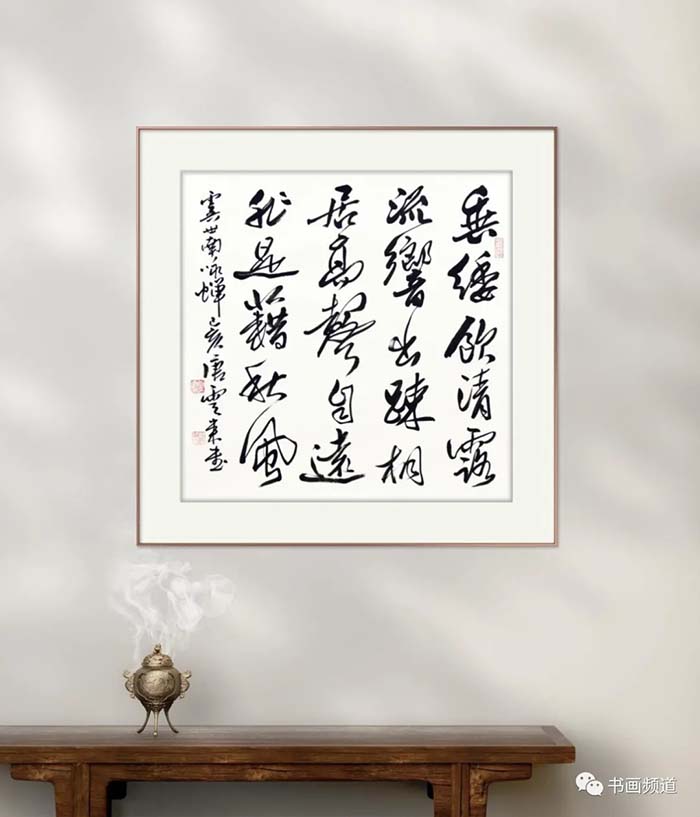 垂緌飲清露
流響出疎桐
居高聲自遠
非是藉秋風
虞世南咏蟬 己亥 唐雲来書
书画频道